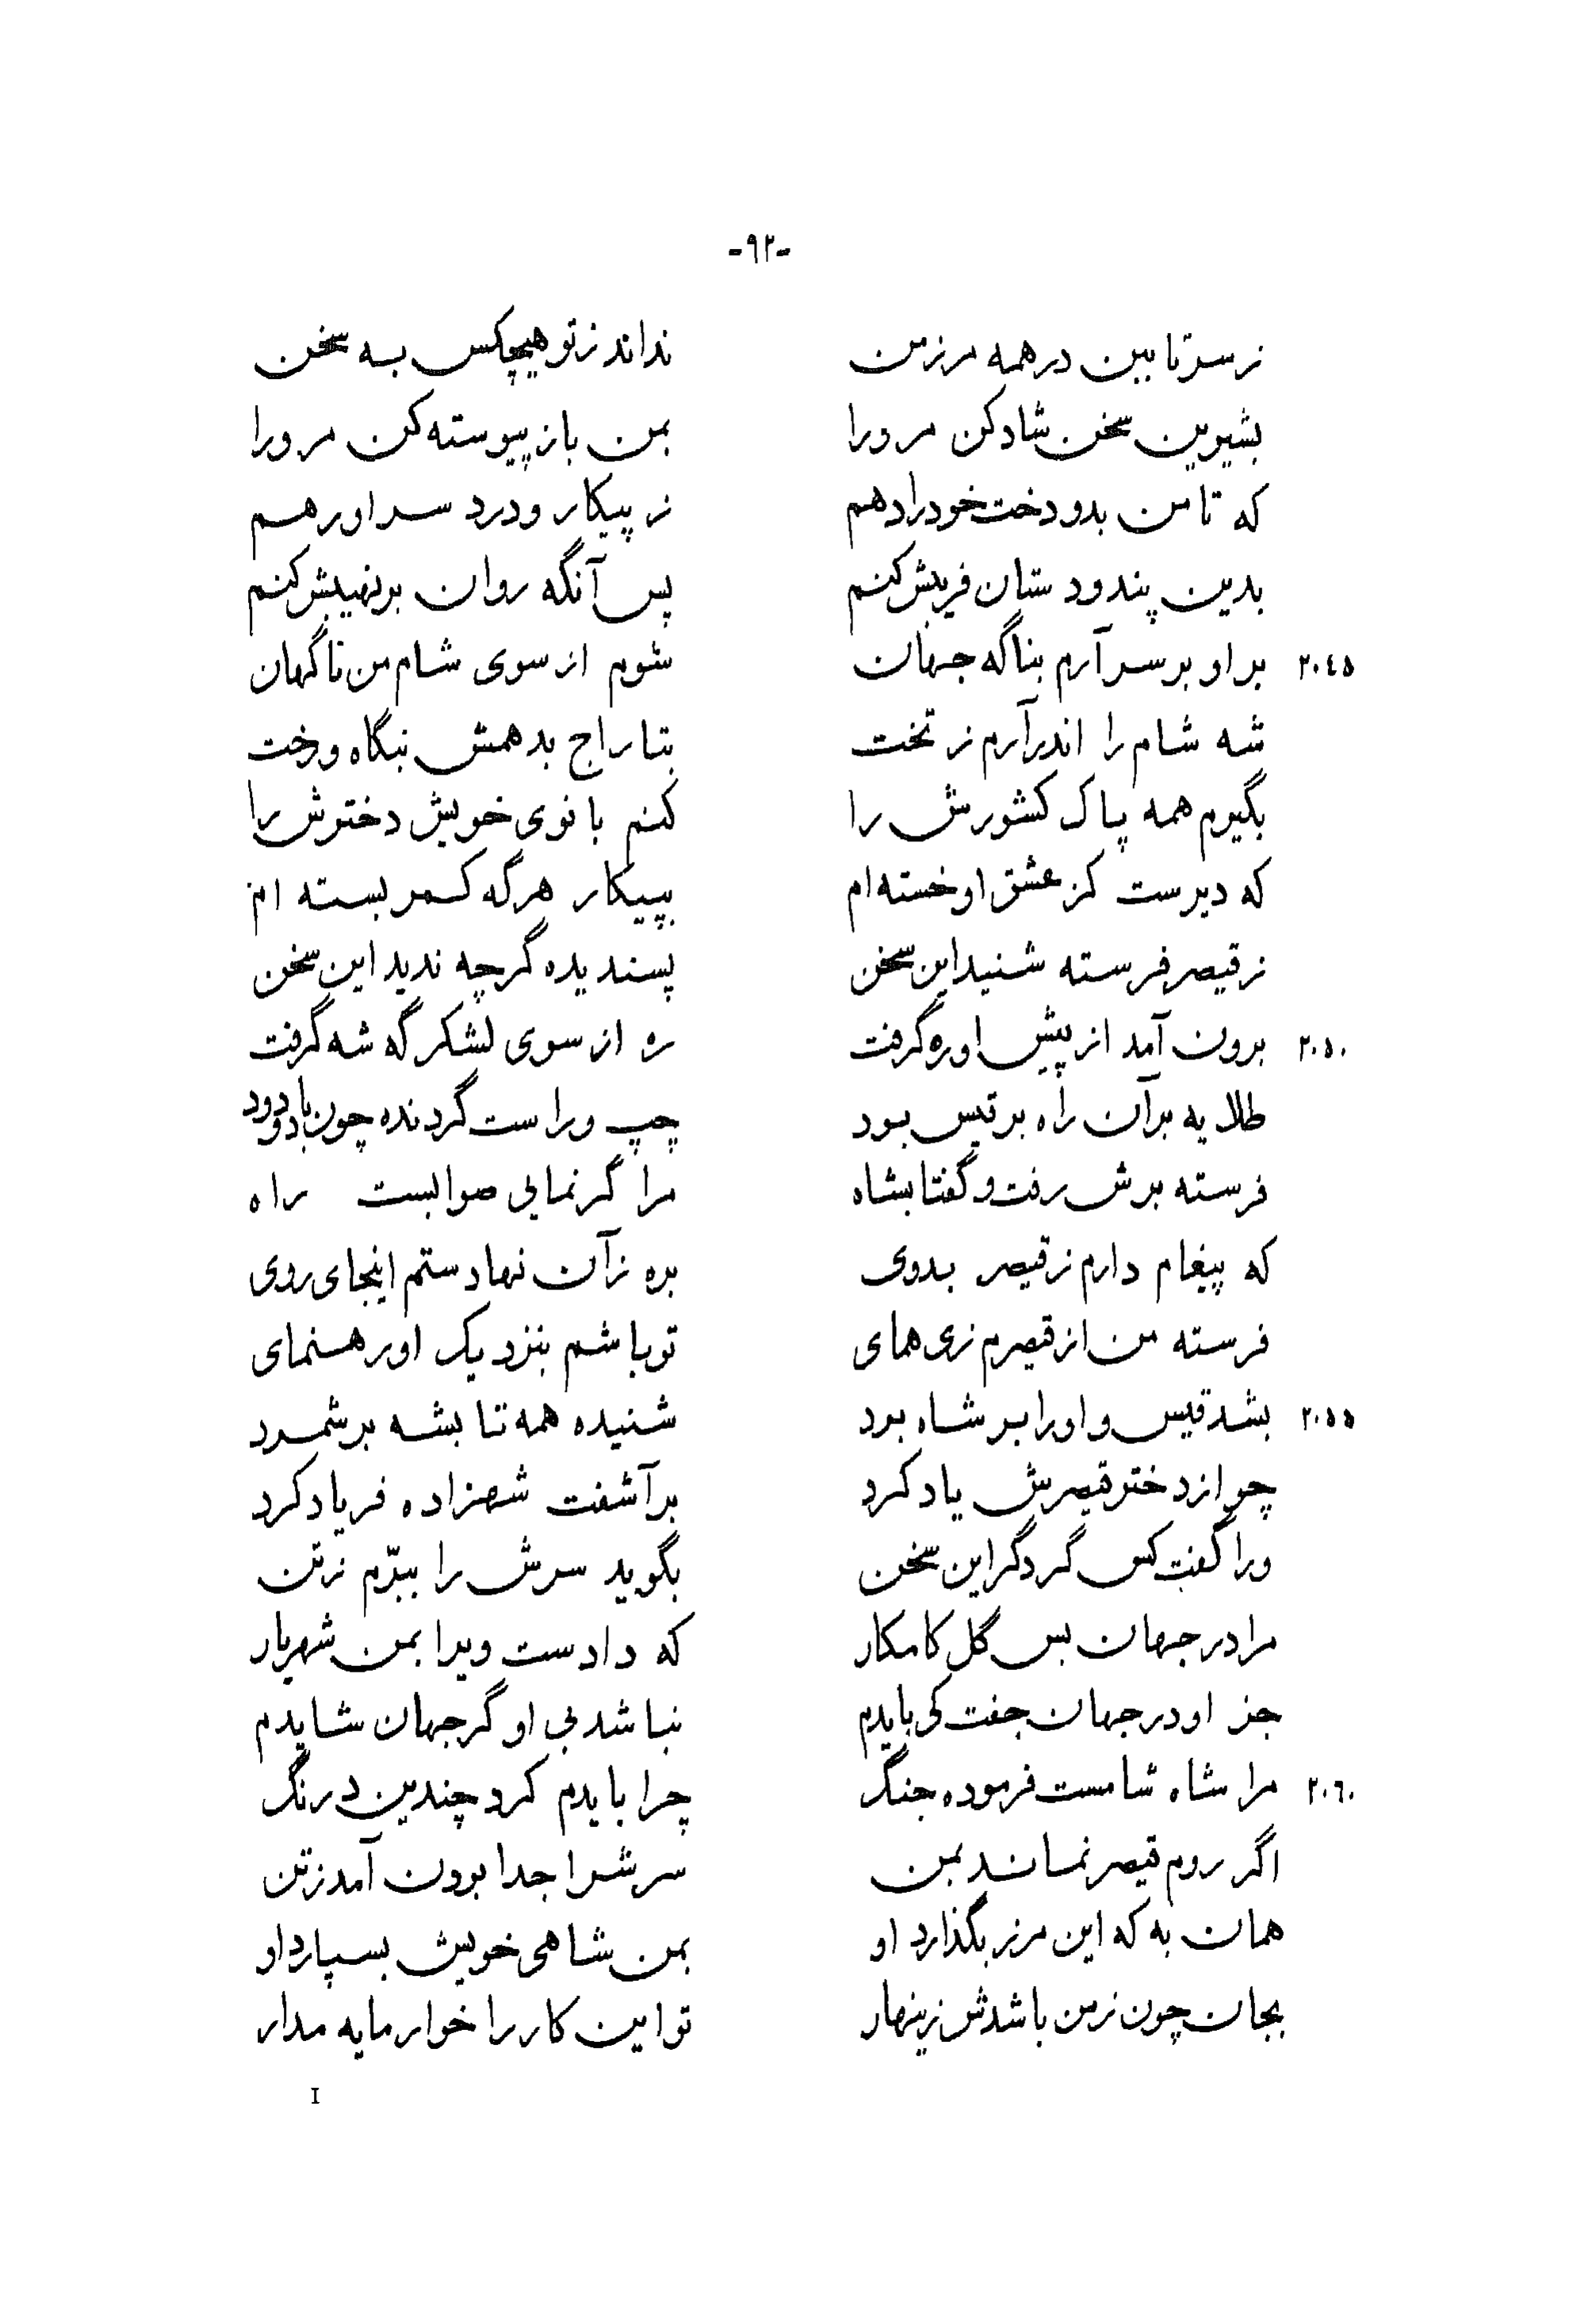 -۹۲-
ز سر تا ببن در همه مرز من نداند ز تو هیچکس به سخن
بشیرین سخن شاد کن مر ورا بمن باز پیوسته کن مر ورا
که تا من بدو دخت خود را دهم ز پیکار و درد سر او رهم
بدین پند و دستان فریبش کنم پس آنگه روان بر نهیبش کنم
۲۰٤۵ بر او بر سر آرم بناگه جهان شوم از سوی شام من ناگهان
شه شام را اندر آرم ز تخت بتاراج بدهمش بنگاه و رخت
بگیرم همه پاک کشورش را کنم بانوی خویش دخترش را
که دیرست کز عشق او خسته ام بپیکار هرگه کمر بسته ام
ز قیصر فرسته شنید این سخن پسندیده گرچه ندید این سخن
۲۰۵۰ برون آمد از پیش او ره گرفت ره از سوی لشکر گه شه گرفت
طلایه بر آن راه بر قیس بود چپ و راست گردنده چون باد و دود
فرسته برش رفت و گفتا بشاه مرا گر نمایی صوابست راه
که پیغام دارم ز قیصر بدوی بره ز آن نهادستم اینجای روی
فرسته من از قیصرم زی همای تو باشم بنزدیک او رهنمای
۲۰۵۵ بشد قیس و او را بر شاه برد شنیده همه تا بشه بر شمرد
چو از دختر قیصرش یاد کرد بر آشفت شهزاده فریاد کرد
ورا گفت کس گر دگر این سخن بگوید سرش را ببرّم ز تن
مرا در جهان بس گل کامکار که دادست ویرا بمن شهریار
جز او در جهان جفت کی بایدم نباشد بی او گر جهان شایدم
۲۰٦۰ مرا شاه شامست فرموده جنگ چرا بایدم کرد چندین درنگ
اگر روم قیصر نماند بمن سرش را جدا برون آمد ز تن
همان به که این مرز بگذارد او بمن شاهی خویش بسپارد او
بجان چون ز من باشدش زینهار تو این کار را خوار مایه مدار
I